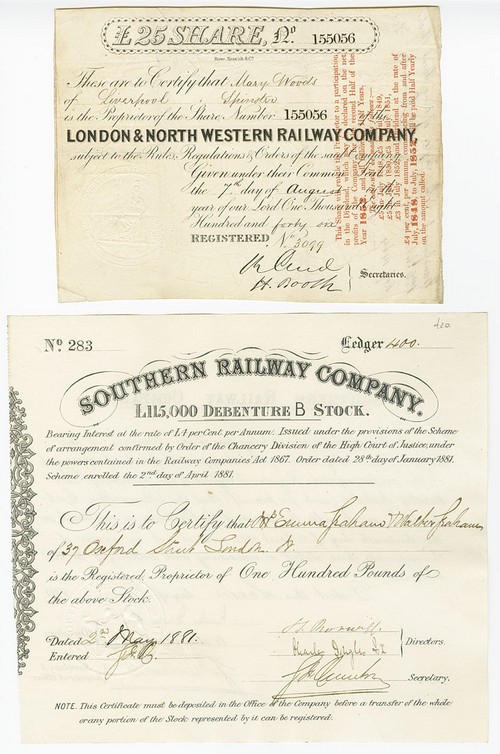 £25 SHARE, No. 155056
These are to Certify that Mary Woods
of Liverpool, Spinster
is the Proprietor of the Share Number 155056 of the
LONDON & NORTH WESTERN RAILWAY COMPANY,
subject to the Rules, Regulations & Orders of the said Company
Given under their Common Seal
the 7th day of August in the
year of our Lord One Thousand Eight
Hundred and forty
REGISTERED No 3099
H. Booth
Secretaries.
This Share entitles the Proprietor to a participation
in the Dividend, which may be declared on the net
profits of the Company, for the second Half of the
Year 1852, and all subsequent Half Years,
£4 per cent. per annum, commencing from and after
July, 1848, to July, 1852, to be paid Half Yearly
on the amount called.
420
No 283
Ledger 400.
SOUTHERN RAILWAY COMPANY.
£115,000 DEBENTURE B STOCK.
Bearing Interest at the rate of £4 per Cent. per Annum. Issued under the provisions of the Scheme
of arrangement confirmed by Order of the Chancery Division of the High Court of Justice, under
the powers contained in the Railway Companies Act 1867. Order dated 28th day of January 1881.
Scheme enrolled the 2nd day of April 1881.
This is to Certify that Emma Graham & Walter Graham
of 37 Oxford Street London W.
is the Registered Proprietor of One Hundred Pounds of
the above Stock.
Dated 2nd May 1881.
Entered
Directors.
Secretary.
NOTE. This Certificate must be deposited in the Office of the Company before a transfer of the whole
or any portion of the Stock represented by it can be registered.